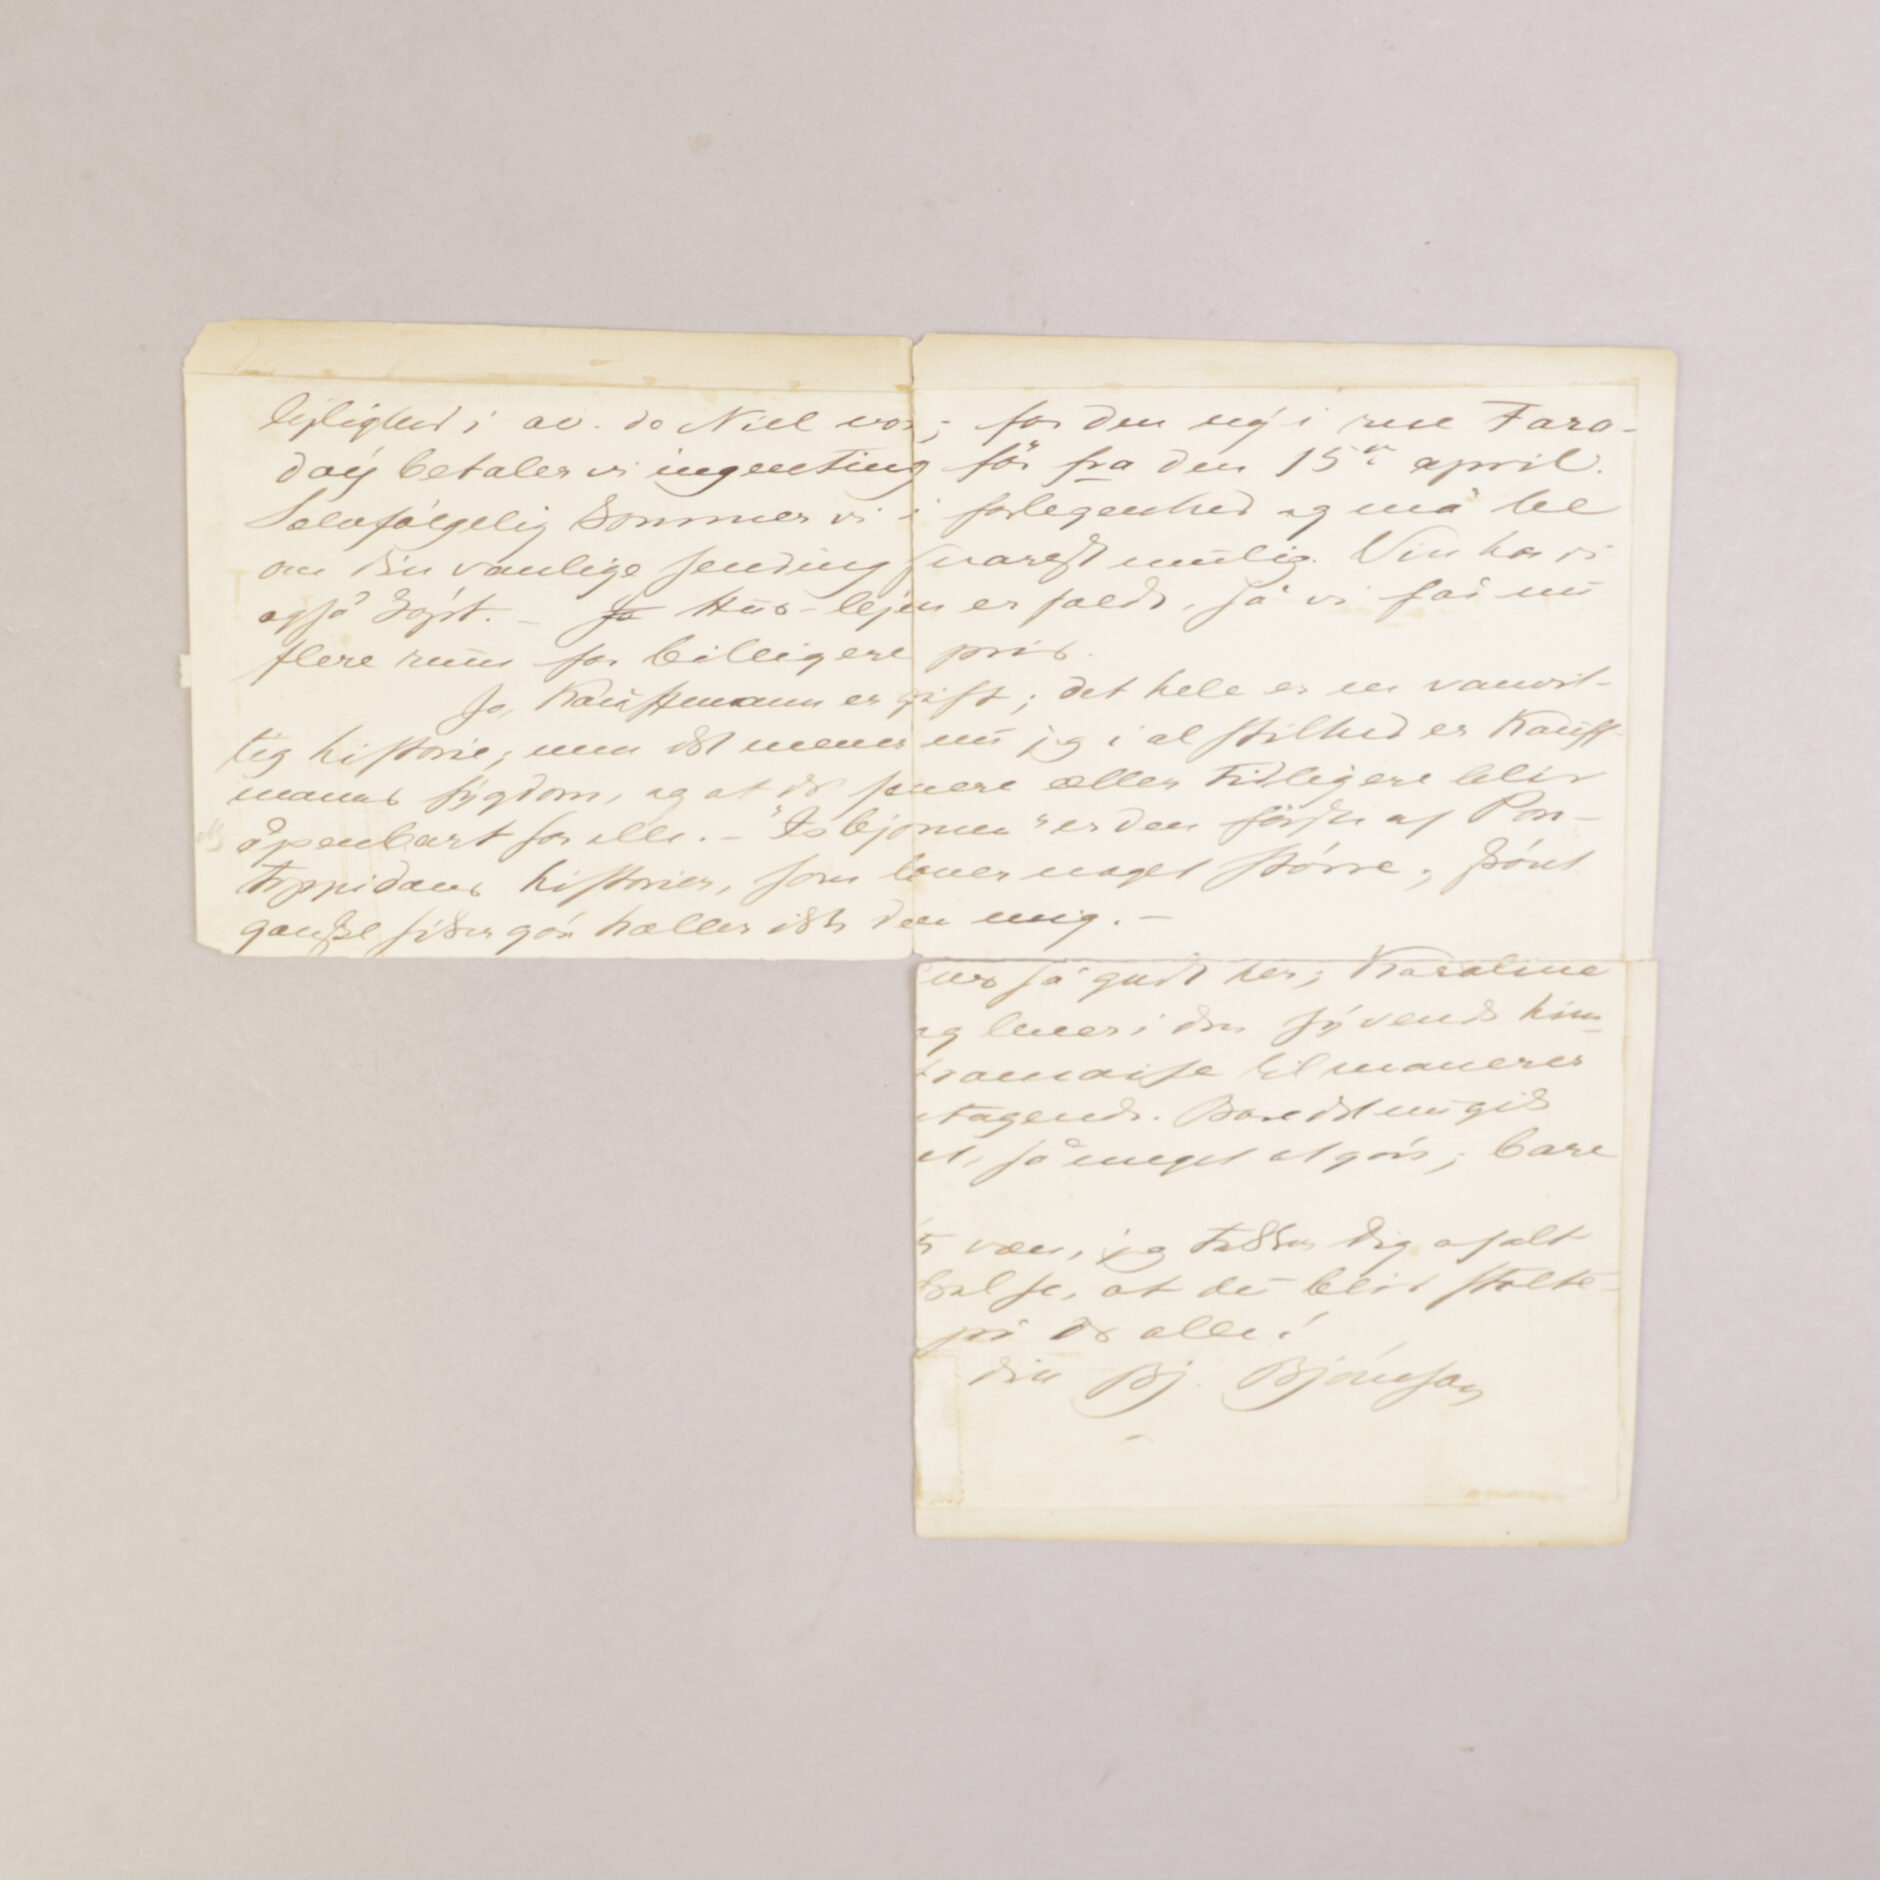 lejlighed i av. de Niel var; for den ny i rue Fara-
day betaler vi ingenting før fra den 15de april.
Sælvfølgelig kommer vi i forlegenhed og må be
om din vanlige sending snarest mulig. Vin har vi
også køpt. – Hus-lejen er faldt, så vi får nu
flere rum for billigere pris.
Jo, Kauffmann er gift; det hele er en vanvit-
tig historie; men det mener nu jeg i al stilhed er Kauff-
manns sygdom, og at det senere æller tidligere blir
åpenbart for alle. – "Isbjørnen" er den første af Pon-
toppidans historier, som lover noget større; skønt
ganske sikker gør hæller ikke den mig. –
så godt her; Karoline
og lever i den syvende him-
francaise til manerer
tagende. Bare det nu gik
så meget at gøre; bare
væn, jeg takker dig af alt
skal se, at du blir stolt
på os alle!
din Bj. Bjørnson